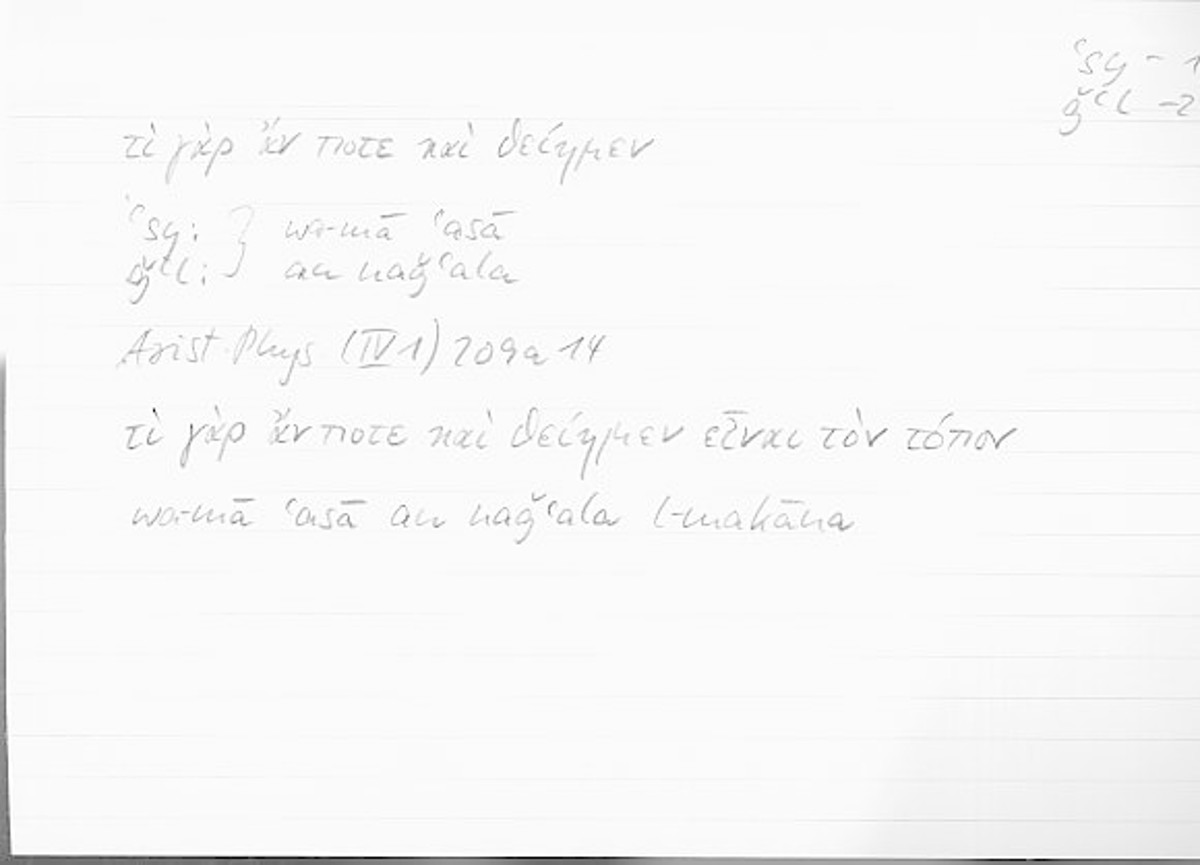 ʿsy – 1
ǧʿl – 2
τὶ γὰρ ἄν ποτε καὶ θείημεν
ʿsy: } wa-mā ʿasā
ǧʿl: } an naǧʿala
Arist. Phys (IV 1) 209a 14
τὶ γὰρ ἄν ποτε καὶ θείημεν εἶναι τὸν τόπον
wa-mā ʿasā an naǧʿala l-makāna